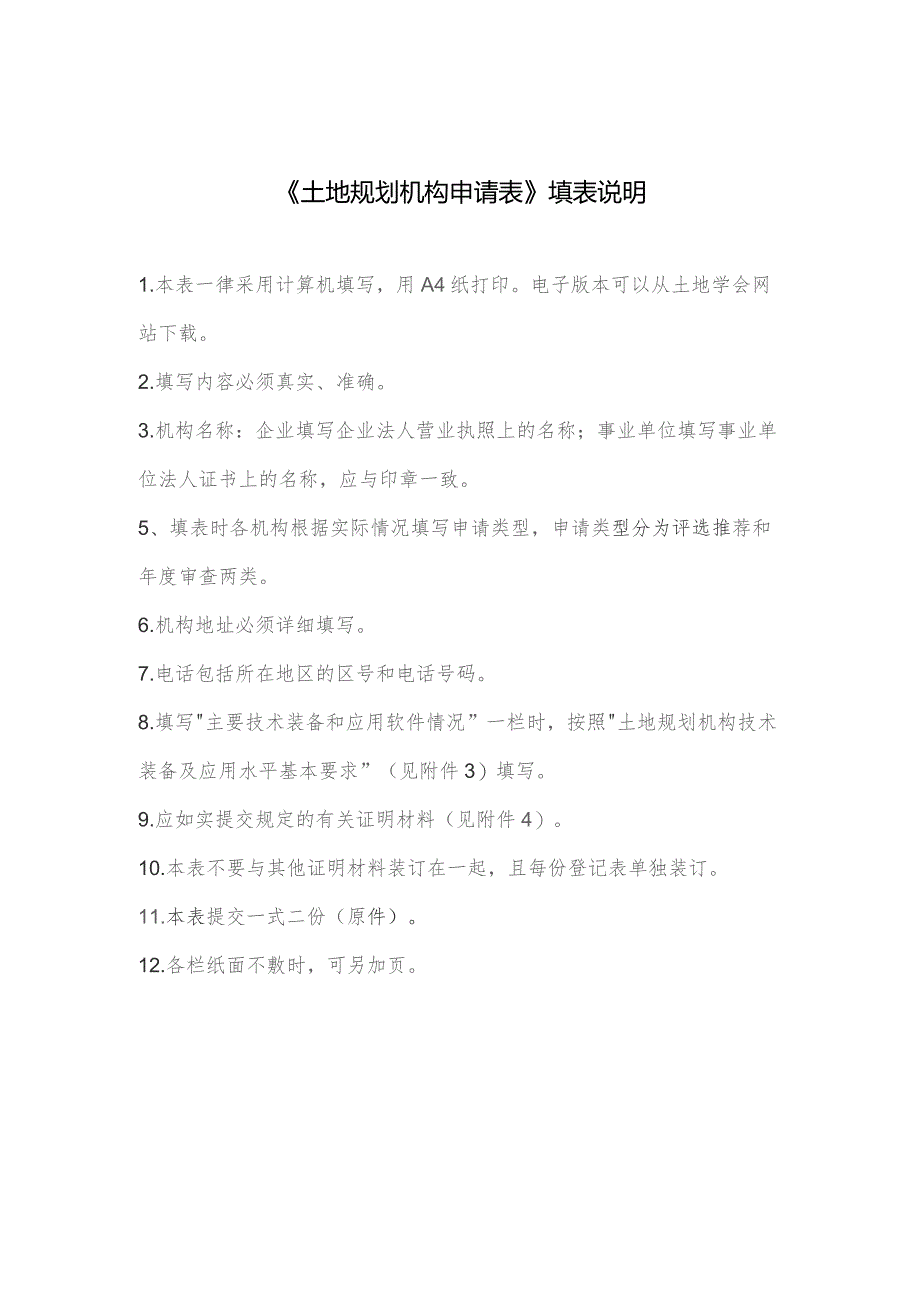 《土地规划机构申请表》填表说明
1.本表一律采用计算机填写，用A4纸打印。电子版本可以从土地学会网
站下载。
2.填写内容必须真实、准确。
3.机构名称：企业填写企业法人营业执照上的名称；事业单位填写事业单
位法人证书上的名称，应与印章一致。
5、填表时各机构根据实际情况填写申请类型，申请类型分为评选推荐和
年度审查两类。
6.机构地址必须详细填写。
7.电话包括所在地区的区号和电话号码。
8.填写"主要技术装备和应用软件情况”一栏时，按照"土地规划机构技术
装备及应用水平基本要求”（见附件3）填写。
9.应如实提交规定的有关证明材料（见附件4）。
10.本表不要与其他证明材料装订在一起，且每份登记表单独装订。
11.本表提交一式二份（原件）。
12.各栏纸面不敷时，可另加页。